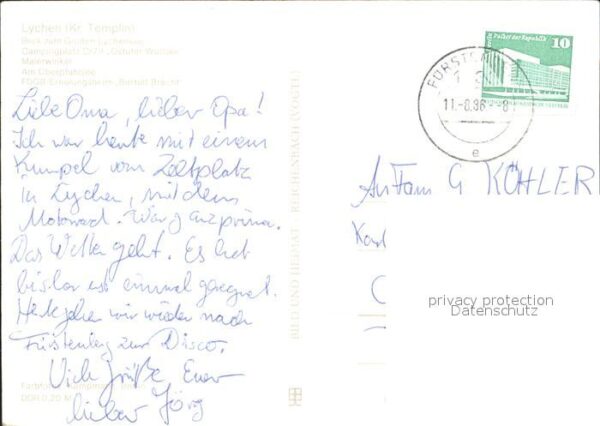 Lychen (Kr. Templin)
Blick zum Großen Lychensee
Campingplatz C/71
Malerwinkel
Am Oberpfuhlsee
FDGB-Erholungsheim „Bertolt Brecht"
Liebe Oma, lieber Opa!
Ich war heute mit einem
Kumpel vom Zeltplatz
in Lychen, mit dem
Motorrad. War ganz prima.
Das Wetter geht. Es hat
bisher erst einmal geregnet.
Heute gehen wir wieder nach
Fürstenberg zur Disco.
Viele Grüße Euer
lieber Jörg
DDR 0,20 M
BILD UND HEIMAT REICHENBACH (VOGTL)
Palast der Republik
10
FÜRSTEN
11.-8.86.-8
e
An Fam G KÖHLER
privacy protection
Datenschutz